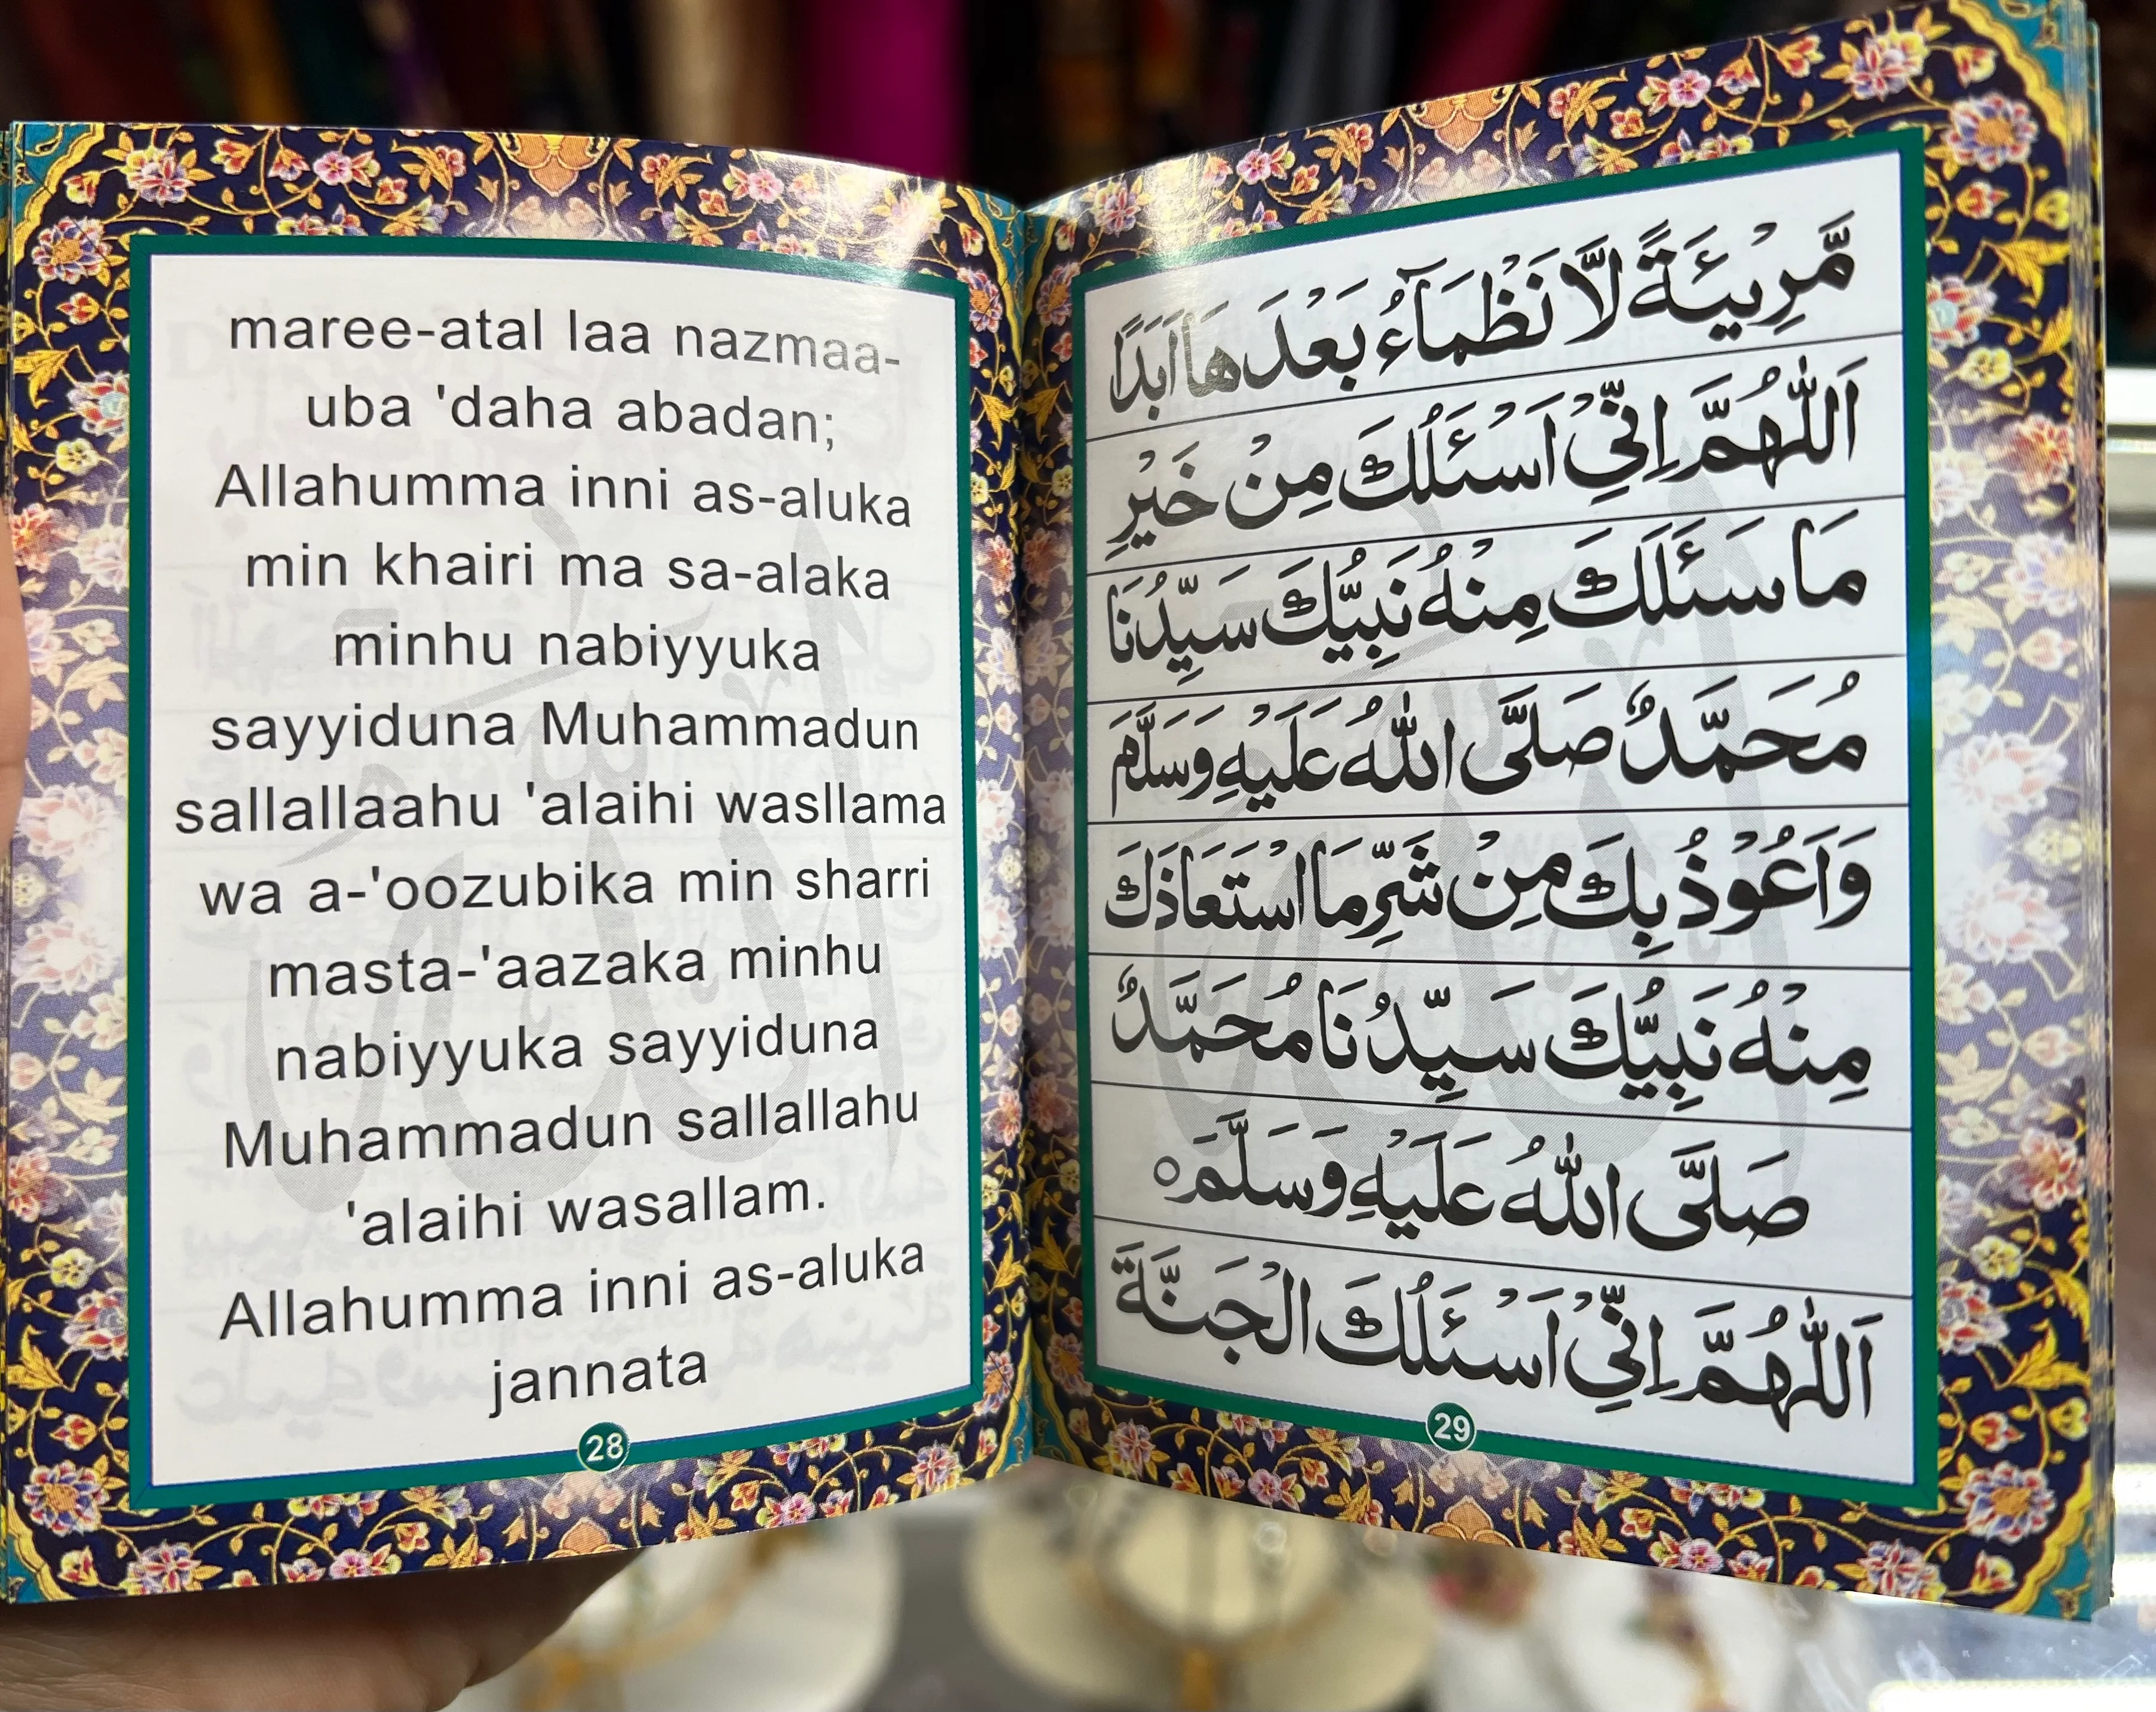 maree-atal laa nazmaa-
uba 'daha abadan;
Allahumma inni as-aluka
min khairi ma sa-alaka
minhu nabiyyuka
sayyiduna Muhammadun
sallallaahu 'alaihi wasllama
wa a-'oozubika min sharri
masta-'aazaka minhu
nabiyyuka sayyiduna
Muhammadun sallallahu
'alaihi wasallam.
Allahumma inni as-aluka
jannata
28
مَّرِيـْئَةً لَّا نَظْمَآءُ بَعْدَهَا اَبَدًا
اَللّٰهُمَّ اِنِّيْ اَسْئَلُكَ مِنْ خَيْرِ
مَا سَئَلَكَ مِنْهُ نَبِيُّكَ سَيِّدُنَا
مُحَمَّدٌ صَلَّى اللّٰهُ عَلَيْهِ وَسَلَّمَ
وَاَعُوْذُ بِكَ مِنْ شَرِّ مَا اسْتَعَاذَكَ
مِنْهُ نَبِيُّكَ سَيِّدُنَا مُحَمَّدٌ
صَلَّى اللّٰهُ عَلَيْهِ وَسَلَّمَ ○
اَللّٰهُمَّ اِنِّيْ اَسْئَلُكَ الْجَنَّةَ
29